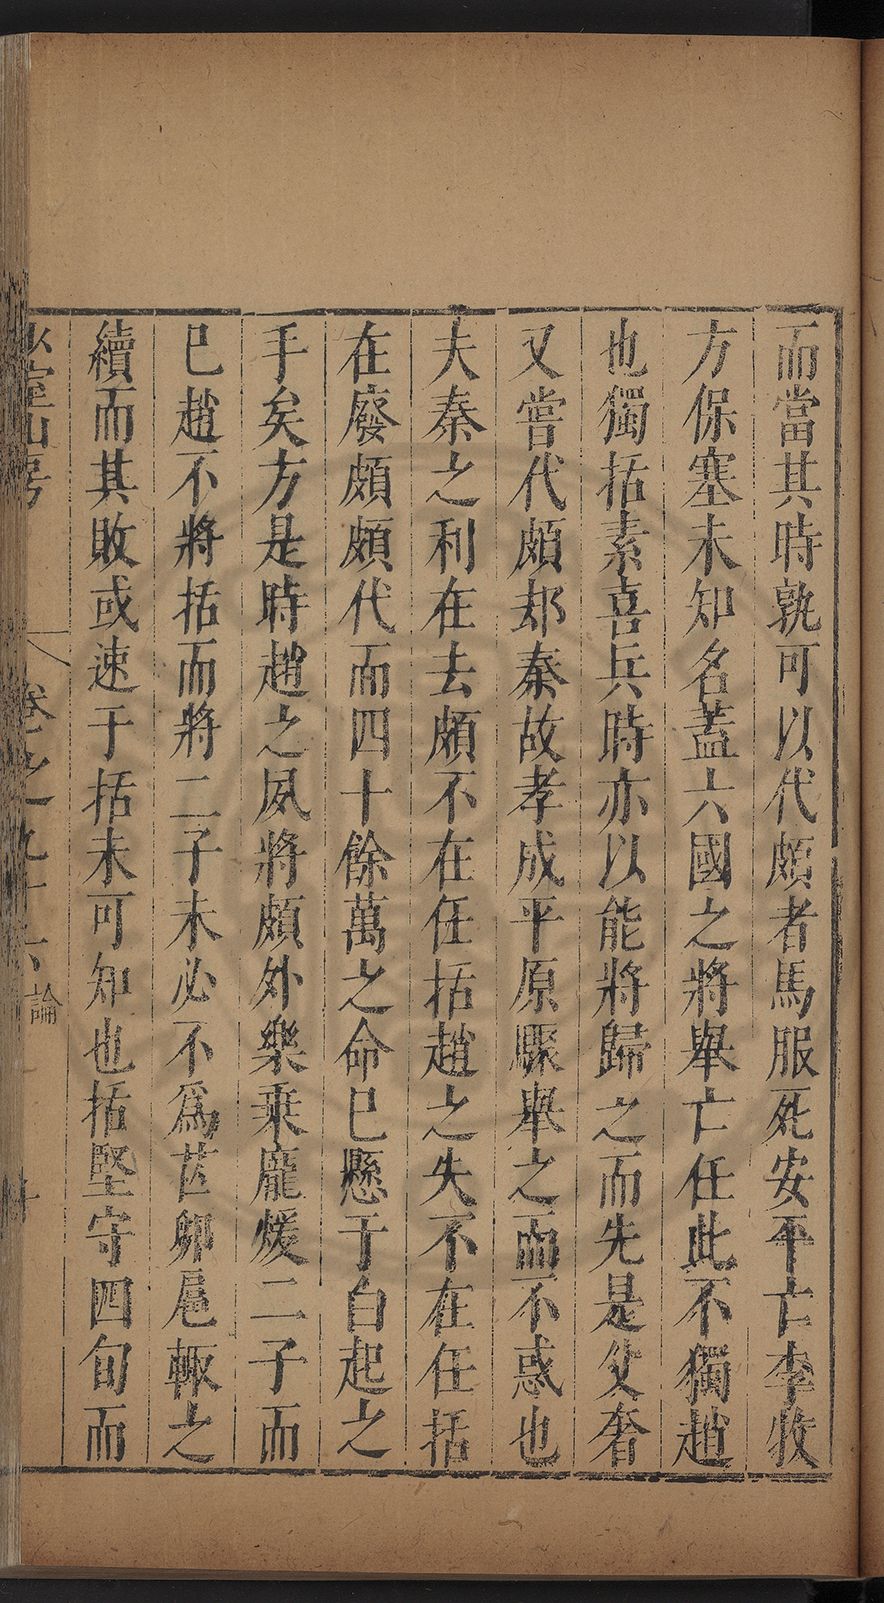 而當其時孰可以代頗者馬服死安平亡李牧
方保塞未知名蓋六國之將舉亡任此不獨趙
也獨括素喜兵時亦以能將歸之而先是父奢
又嘗代頗却秦故孝成平原驟舉之而不惑也
夫秦之利在去頗不在任括趙之失不在任括
在廢頗頗代而四十餘萬之命已懸于白起之
手矣方是時趙之夙將頗外樂乘龐煖二子而
已趙不將括而將二子未必不爲芒卯扈輙之
續而其敗或速于括未可知也括堅守四旬而
室山房
卷之九十六論